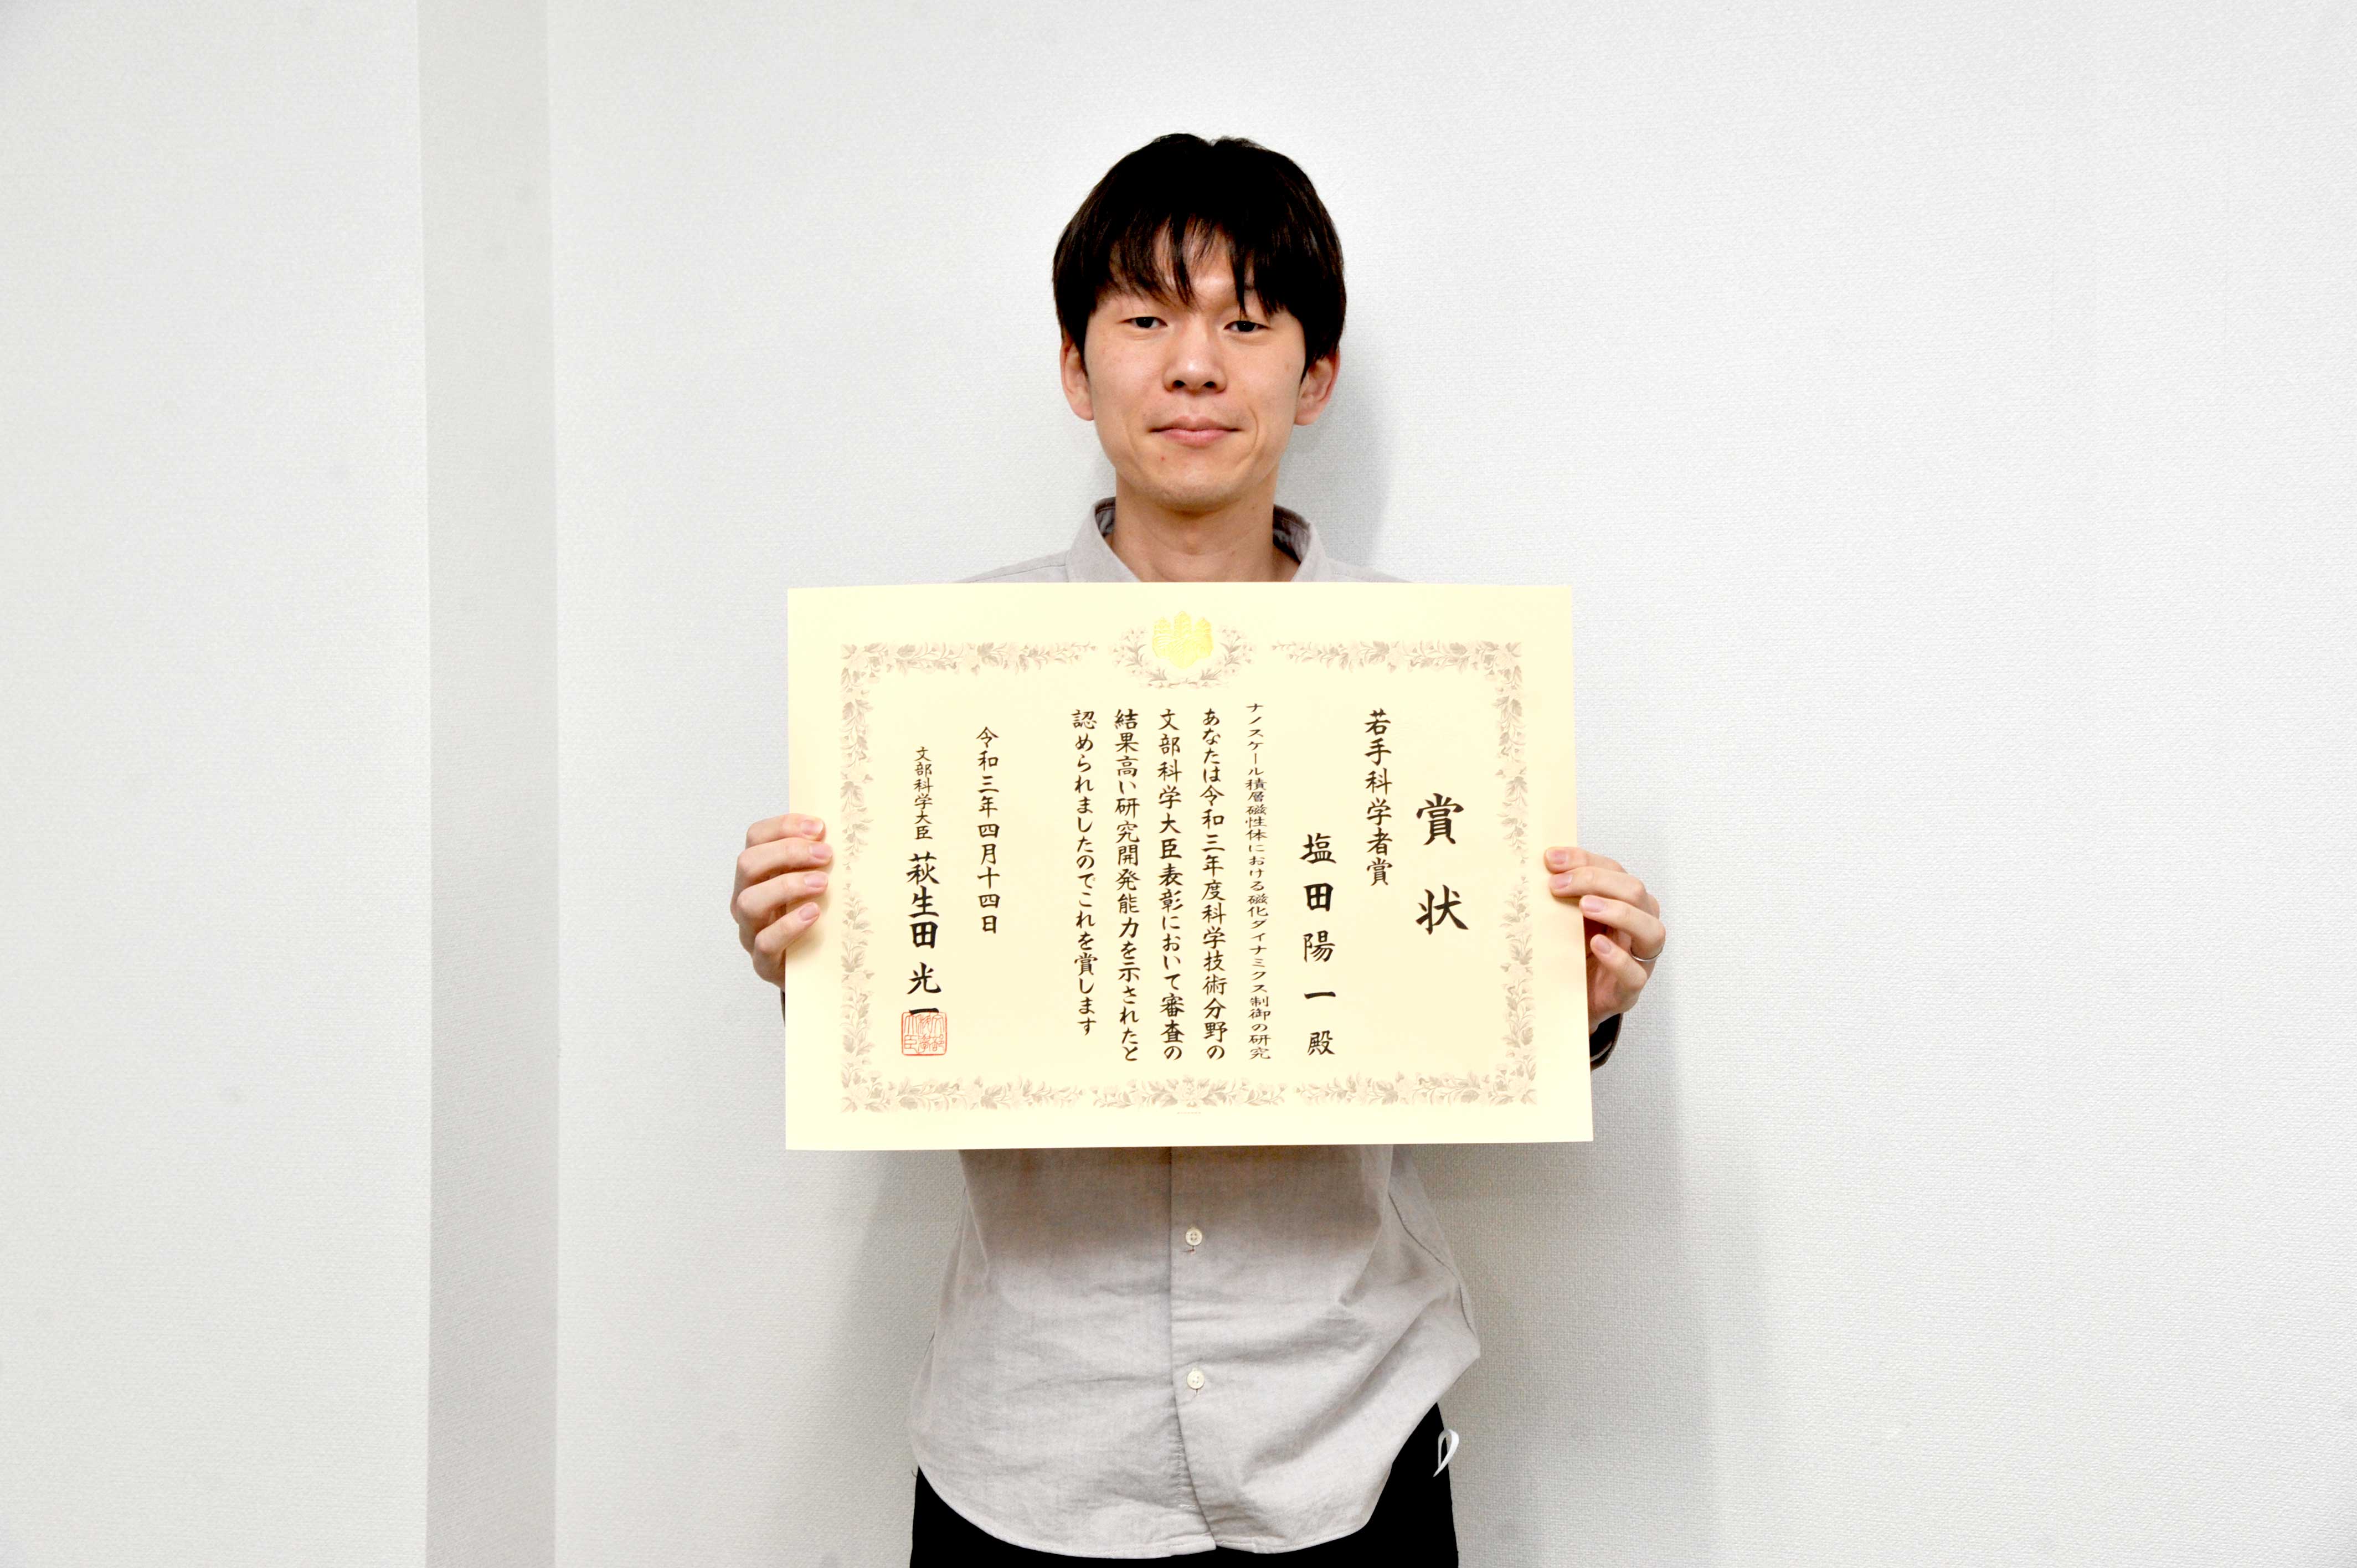 賞状
若手科学者賞
塩田陽一殿
ナノスケール積層磁性体における磁化ダイナミクス制御の研究
あなたは令和三年度科学技術分野の
文部科学大臣表彰において審査の
結果高い研究開発能力を示されたと
認められましたのでこれを賞します
令和三年四月十四日
文部科学大臣 萩生田光一